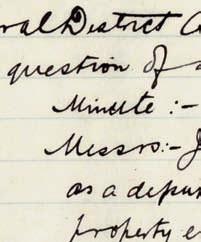 ral District
question of
Minute :-
Messrs:- J
as a depu
property e